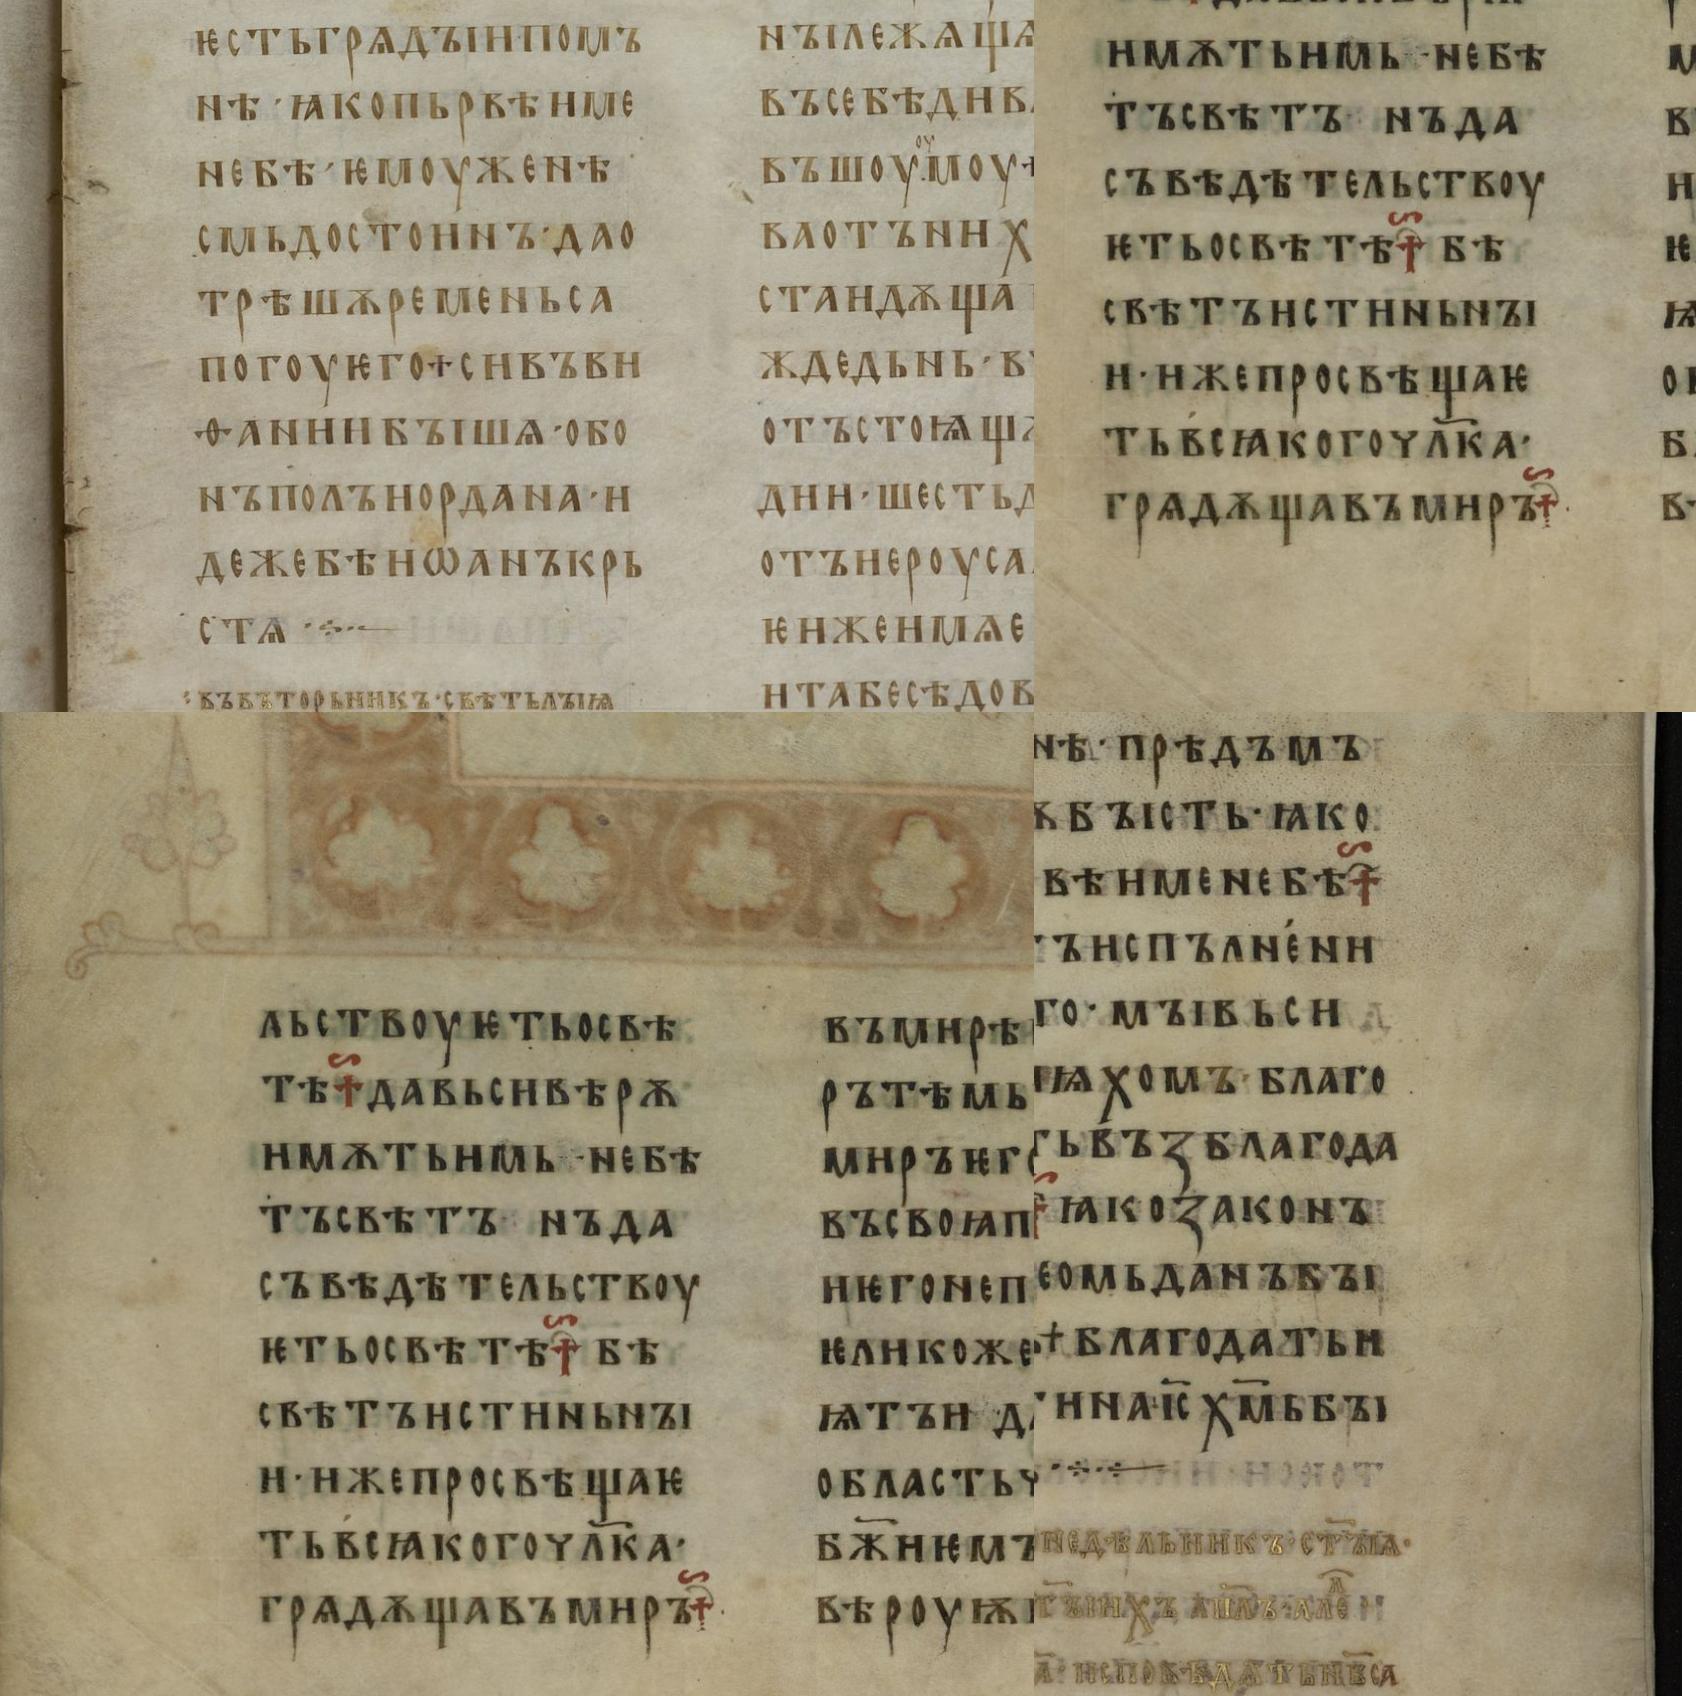 ѥстьгрѧдꙑипомъ
нѣ·ꙗкопьрвѣиме
небѣ·ѥмоуженѣ
смьдостоинъ·дао
трѣшѫременьса
погоуѥго+сивъви
ѳаниибꙑшѧ·обо
нъполъиордана·и
дежебѣиѡанъкрь
стѧ
въвъторьникъ·свѣтьлꙑꙗ
нꙑлежѧщѧ
въсебѣдив
въшоумоу+
ваотъних
стаидѫща
ждедьнь·в
отъстоꙗщ
дии·шесть
отъиероуса
ѥижеимѧе
итабесѣдов
имѫтьимь·небѣ
тъсвѣтъ нъда
съвѣдѣтельствоу
ѥтьосвѣтѣ+бѣ
свѣтъистиньнꙑ
и·ижепросвѣщаѥ
тьвсꙗкогочл҃ка·
грѧдѫщавъмиръ+
льствоуѥтьосвѣ
тѣ+давьсивѣрѫ
имѫтьимь·небѣ
тъсвѣтъ нъда
съвѣдѣтельствоу
ѥтьосвѣтѣ+бѣ
свѣтъистиньнꙑ
и·ижепросвѣщаѥ
тьвсꙗкогочл҃ка·
грѧдѫщавъмиръ+
въмирѣ
рътѣмь
миръѥго
въсвоꙗп
иѥгонеп
ѥликоже
ѩтъи д
область
бж҃иѥмъ
вѣроуѭ
нѣ·прѣдъмъ
бꙑсть·ꙗко
вѣименебѣ+
ъиспълнени
го·мꙑвьси
ꙗхомъ·благо
ьвъзблагода
+ꙗкозаконъ
еомьданъбꙑ
+благодатьи
инаіс҃хм҃ьбꙑ
недѣльникъ·ст҃ꙑꙗ·
ꙑихъ ап҃лъ·
исповѣдѧть